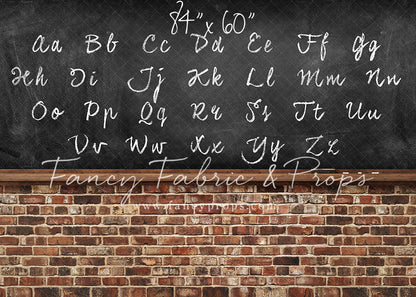 84" x 60"
Aa Bb Cc Dd Ee Ff Gg
Hh Ii Jj Kk Ll Mm Nn
Oo Pp Qq Rr Ss Tt Uu
Vv Ww Xx Yy Zz
Fancy Fabric & Props